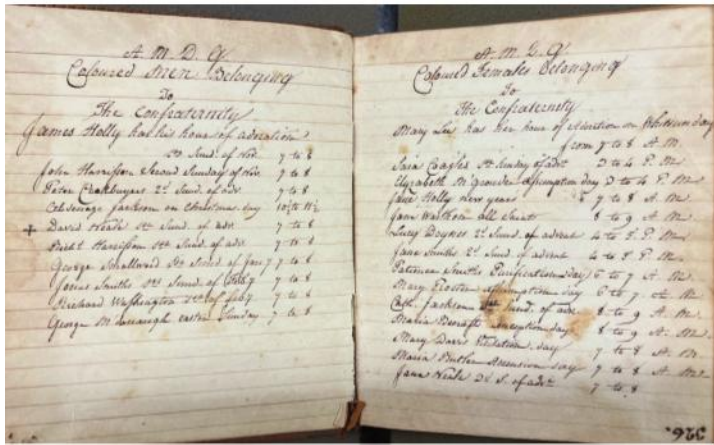 A. M. D. G.
Coloured Men Belonging
To
The Confraternity
James Holly has his hour of adoration
1st Sund. of Nov. 7 to 8
John Harrisson Second Sunday of Nov. 7 to 8
Peter 2d Sund. of adv 7 to 8
Jackson on Christmas day 10½ to 11½
+ David Neale Sund. of adv. 7 to 8
Harrisson Sund. of adv. 7 to 8
George Smallwood Sund. of Jan 7 to 8
Smiths Sund. of Feby 7 to 8
Richard Washington of Feby 7 to 8
George easter Sunday 7 to 8
A. M. D. G.
Coloured Females Belonging
To
The Confraternity
Mary Lee has her hour of on Whitsun day
from 7 to 8 A. M.
Sunday of adv. 3 to 4 P. M.
Elizabeth assumption day 3 to 4 P. M.
Jane Holly new years 7 to 8 A. M.
Jane all Saints 8 to 9 A. M.
Lucy 2d Sund. of advent 4 to 5 P. M.
Jane Smiths 2d Sund. of advent 4 to 5 P. M.
Patience Smiths Purification day 6 to 7 A. M.
Mary day 6 to 7 A. M.
Cath. Jackson Sund. of adv. 8 to 9 A. M.
Maria day 8 to 9 A. M.
Mary Davis Visitation day 7 to 8 A. M.
Maria Butler Ascension day 7 to 8 A. M.
Jane Neale 2d S. of adv. 7 to 8